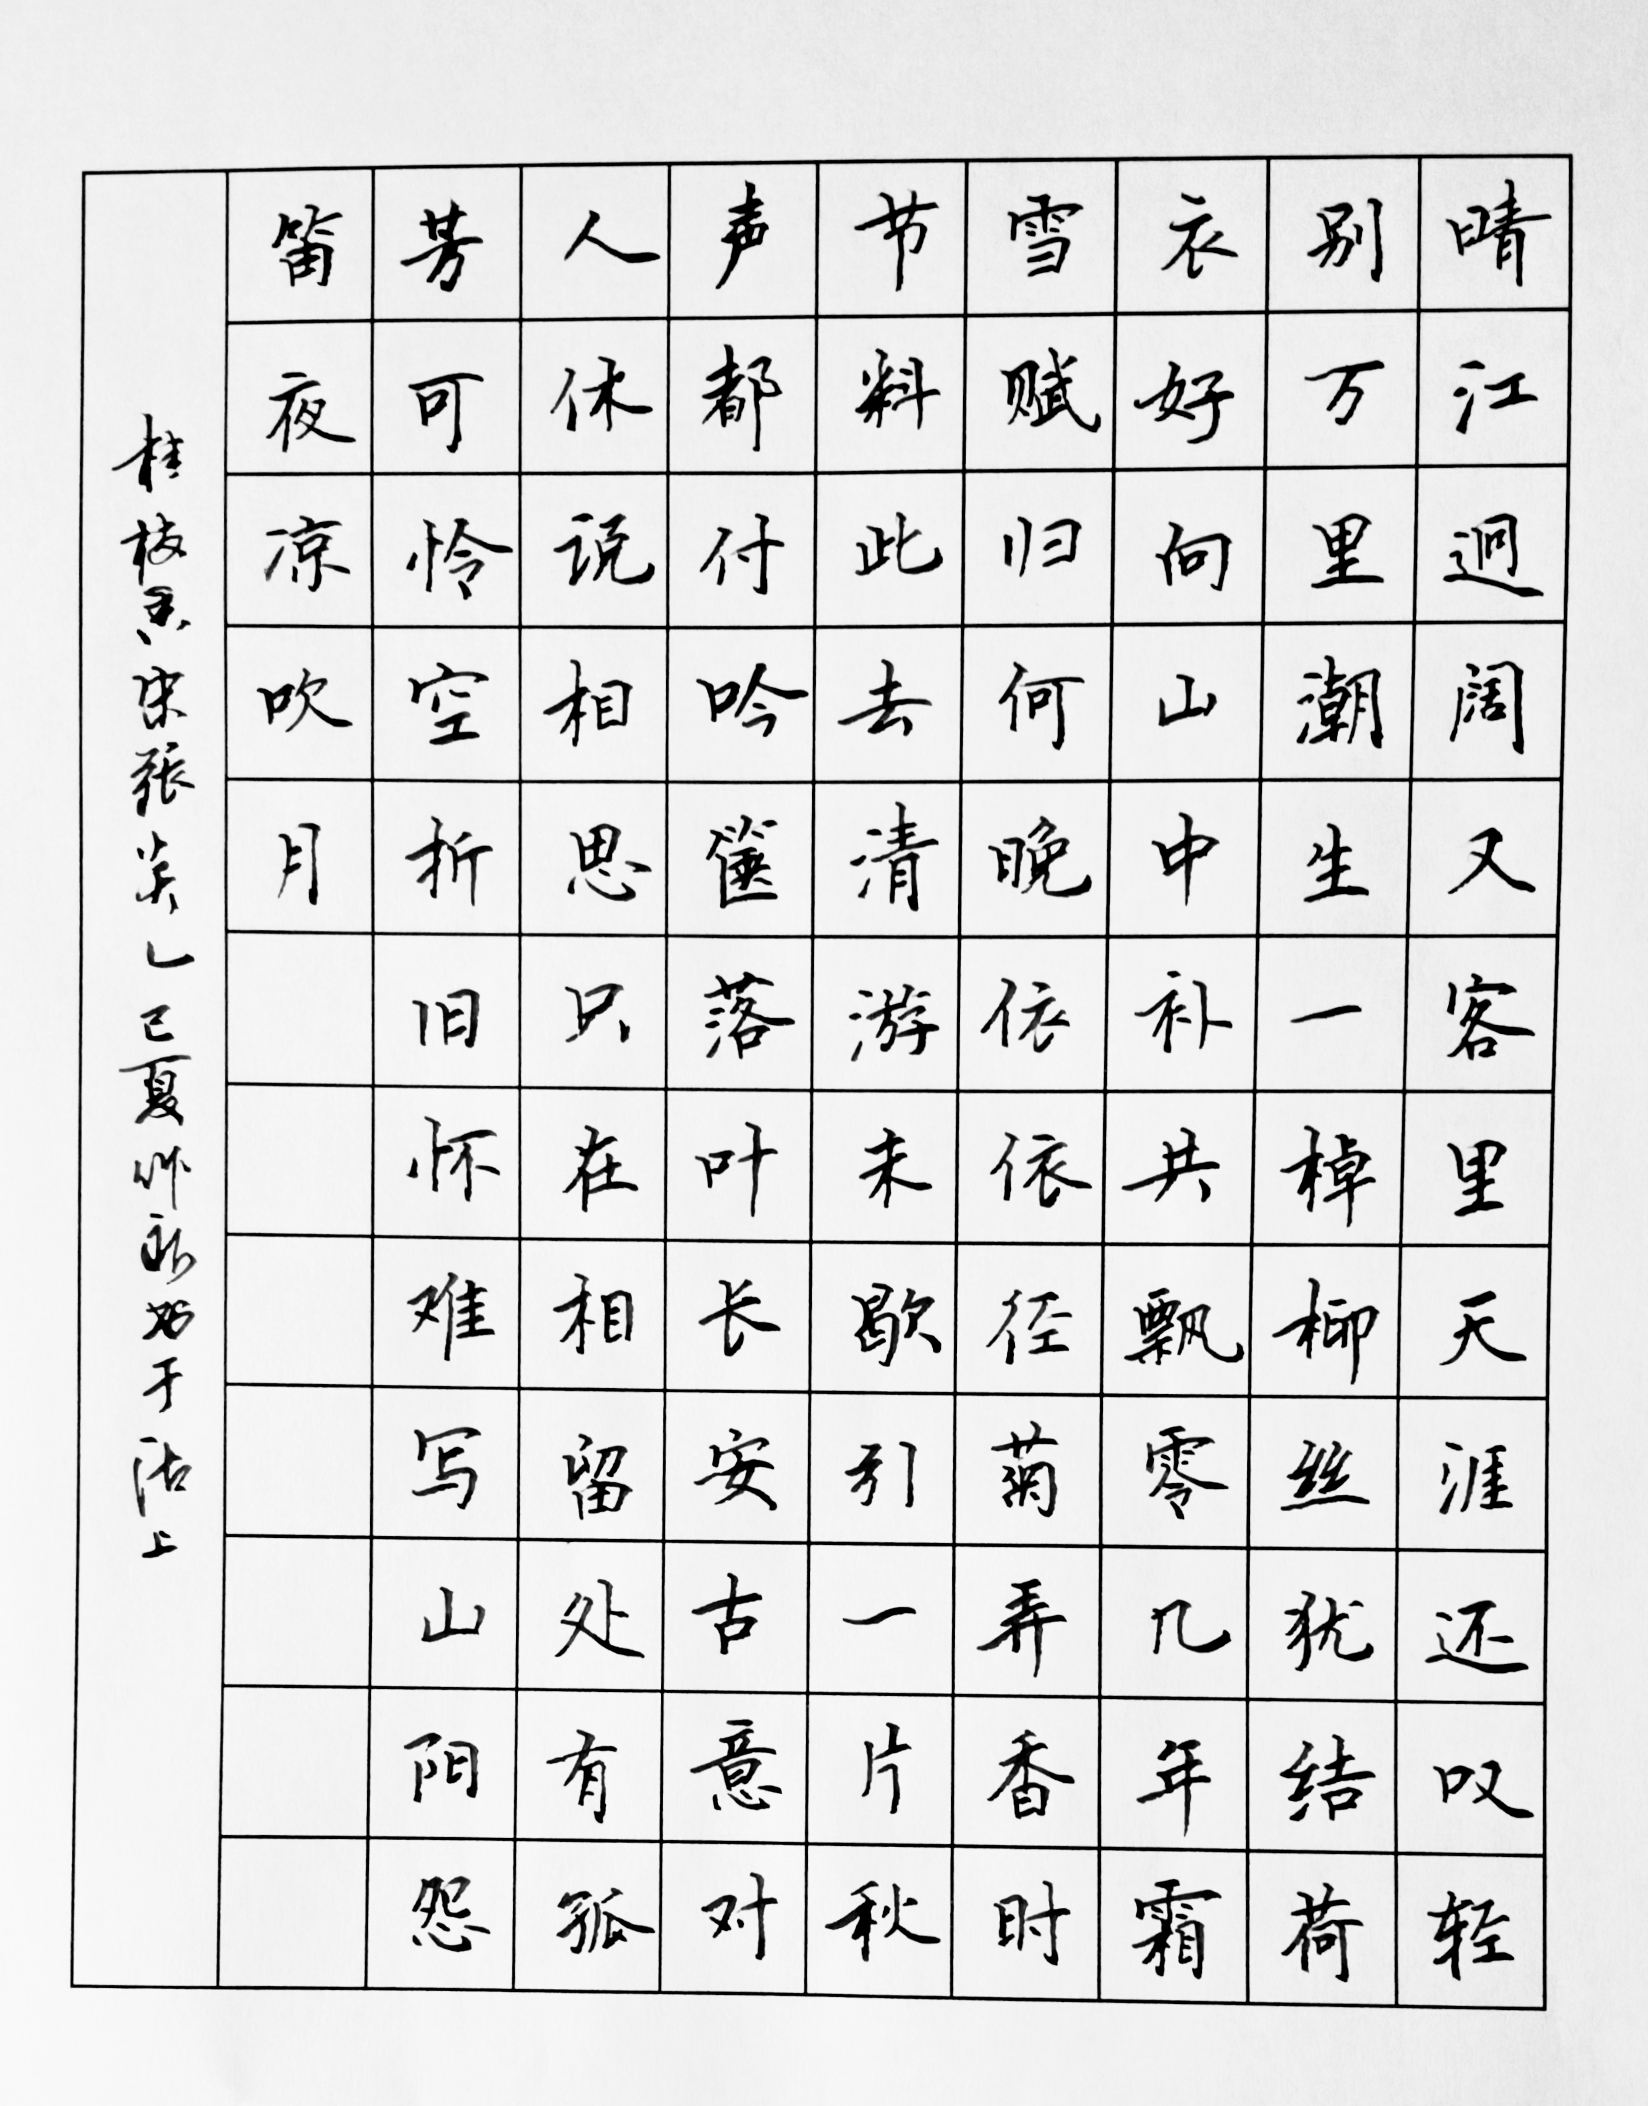 晴江迥阔又客里天涯还叹轻
别万里潮生一棹柳丝犹结荷
衣好向山中补共飘零几年霜
雪赋归何晚依依径菊弄香时
节料此去清游未歇引一片秋
声都付吟箧落叶长安古意对
人休说相思只在相留处有孤
芳可怜空折旧怀难写山阳怨
笛夜凉吹月
桂枝香宋张炎乙巳夏于沽上